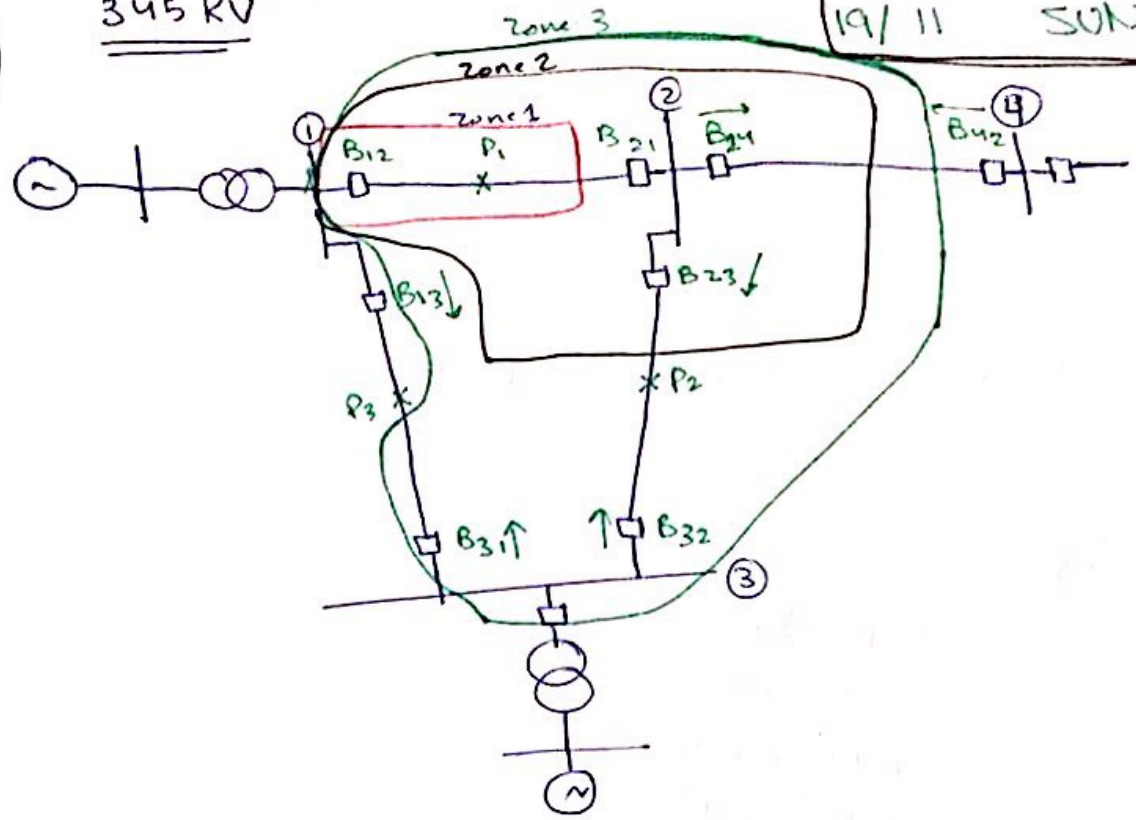 345 KV
19/ 11 SUN
Zone 3
Zone 2
Zone 1
1
2
4
B12
P1
B21
B24
B42
~
B13
B23
P3
P2
B31
B32
3
~